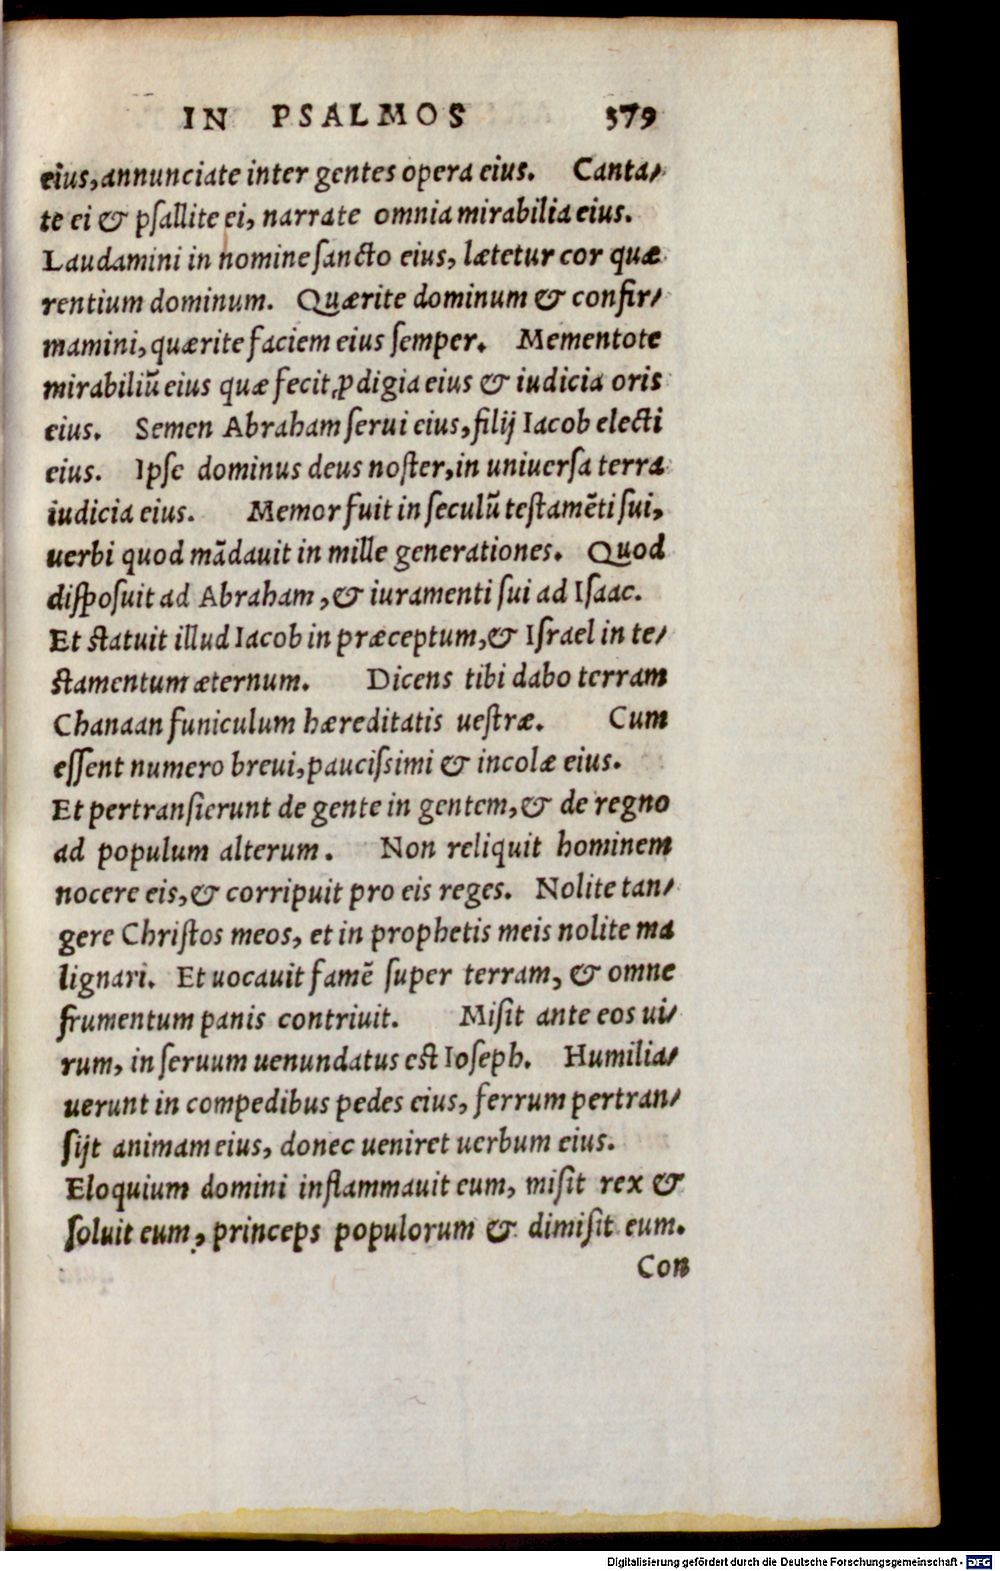 IN PSALMOS 379
eius, annunciate inter gentes opera eius. Canta⸗
te ei & psallite ei, narrate omnia mirabilia eius.
Laudamini in nomine sancto eius, lætetur cor quæ
rentium dominum. Quærite dominum & confir⸗
mamini, quærite faciem eius semper. Mementote
mirabiliũ eius quæ fecit, ꝓdigia eius & iudicia oris
eius. Semen Abraham serui eius, filij Iacob electi
eius. Ipse dominus deus noster, in uniuersa terra
iudicia eius. Memor fuit in seculũ testamẽti sui,
uerbi quod mãdauit in mille generationes. Quod
disposuit ad Abraham, & iuramenti sui ad Isaac.
Et statuit illud Iacob in præceptum, & Israel in te⸗
stamentum æternum. Dicens tibi dabo terram
Chanaan funiculum hæreditatis uestræ. Cum
essent numero breui, paucissimi & incolæ eius.
Et pertransierunt de gente in gentem, & de regno
ad populum alterum. Non reliquit hominem
nocere eis, & corripuit pro eis reges. Nolite tan⸗
gere Christos meos, et in prophetis meis nolite ma
lignari. Et uocauit famẽ super terram, & omne
frumentum panis contriuit. Misit ante eos ui⸗
rum, in seruum uenundatus est Ioseph. Humilia⸗
uerunt in compedibus pedes eius, ferrum pertran⸗
sijt animam eius, donec ueniret uerbum eius.
Eloquium domini inflammauit eum, misit rex &
soluit eum, princeps populorum & dimisit eum.
Con
Digitalisierung gefördert durch die Deutsche Forschungsgemeinschaft - DFG